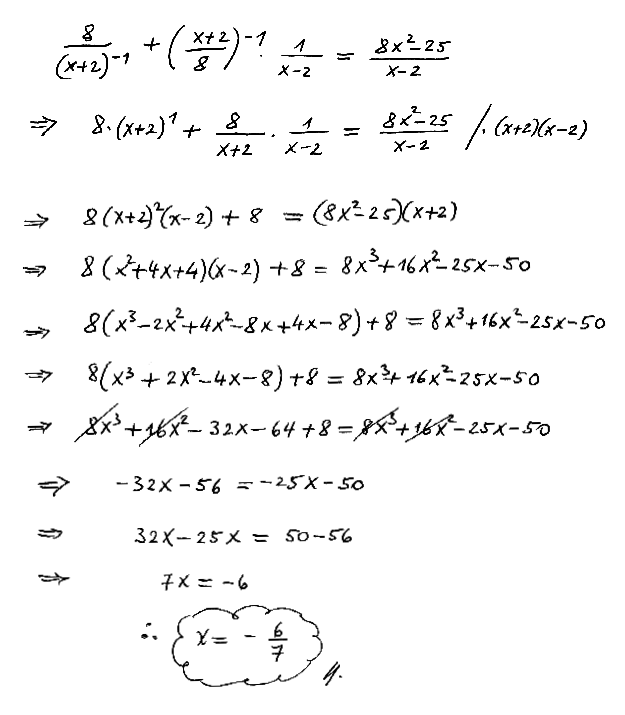 8/(x+2)⁻¹ + ((x+2)/8)⁻¹ · 1/(x-2) = (8x²-25)/(x-2)
⇒ 8·(x+2)¹ + 8/(x+2) · 1/(x-2) = (8x²-25)/(x-2) /·(x+2)(x-2)
⇒ 8(x+2)²(x-2) + 8 = (8x²-25)(x+2)
⇒ 8(x²+4x+4)(x-2) + 8 = 8x³+16x²-25x-50
⇒ 8(x³-2x²+4x²-8x+4x-8) + 8 = 8x³+16x²-25x-50
⇒ 8(x³+2x²-4x-8) + 8 = 8x³+16x²-25x-50
⇒ 8x³+16x²-32x-64+8 = 8x³+16x²-25x-50
⇒ -32x-56 = -25x-50
⇒ 32x-25x = 50-56
⇒ 7x = -6
∴ x = -6/7